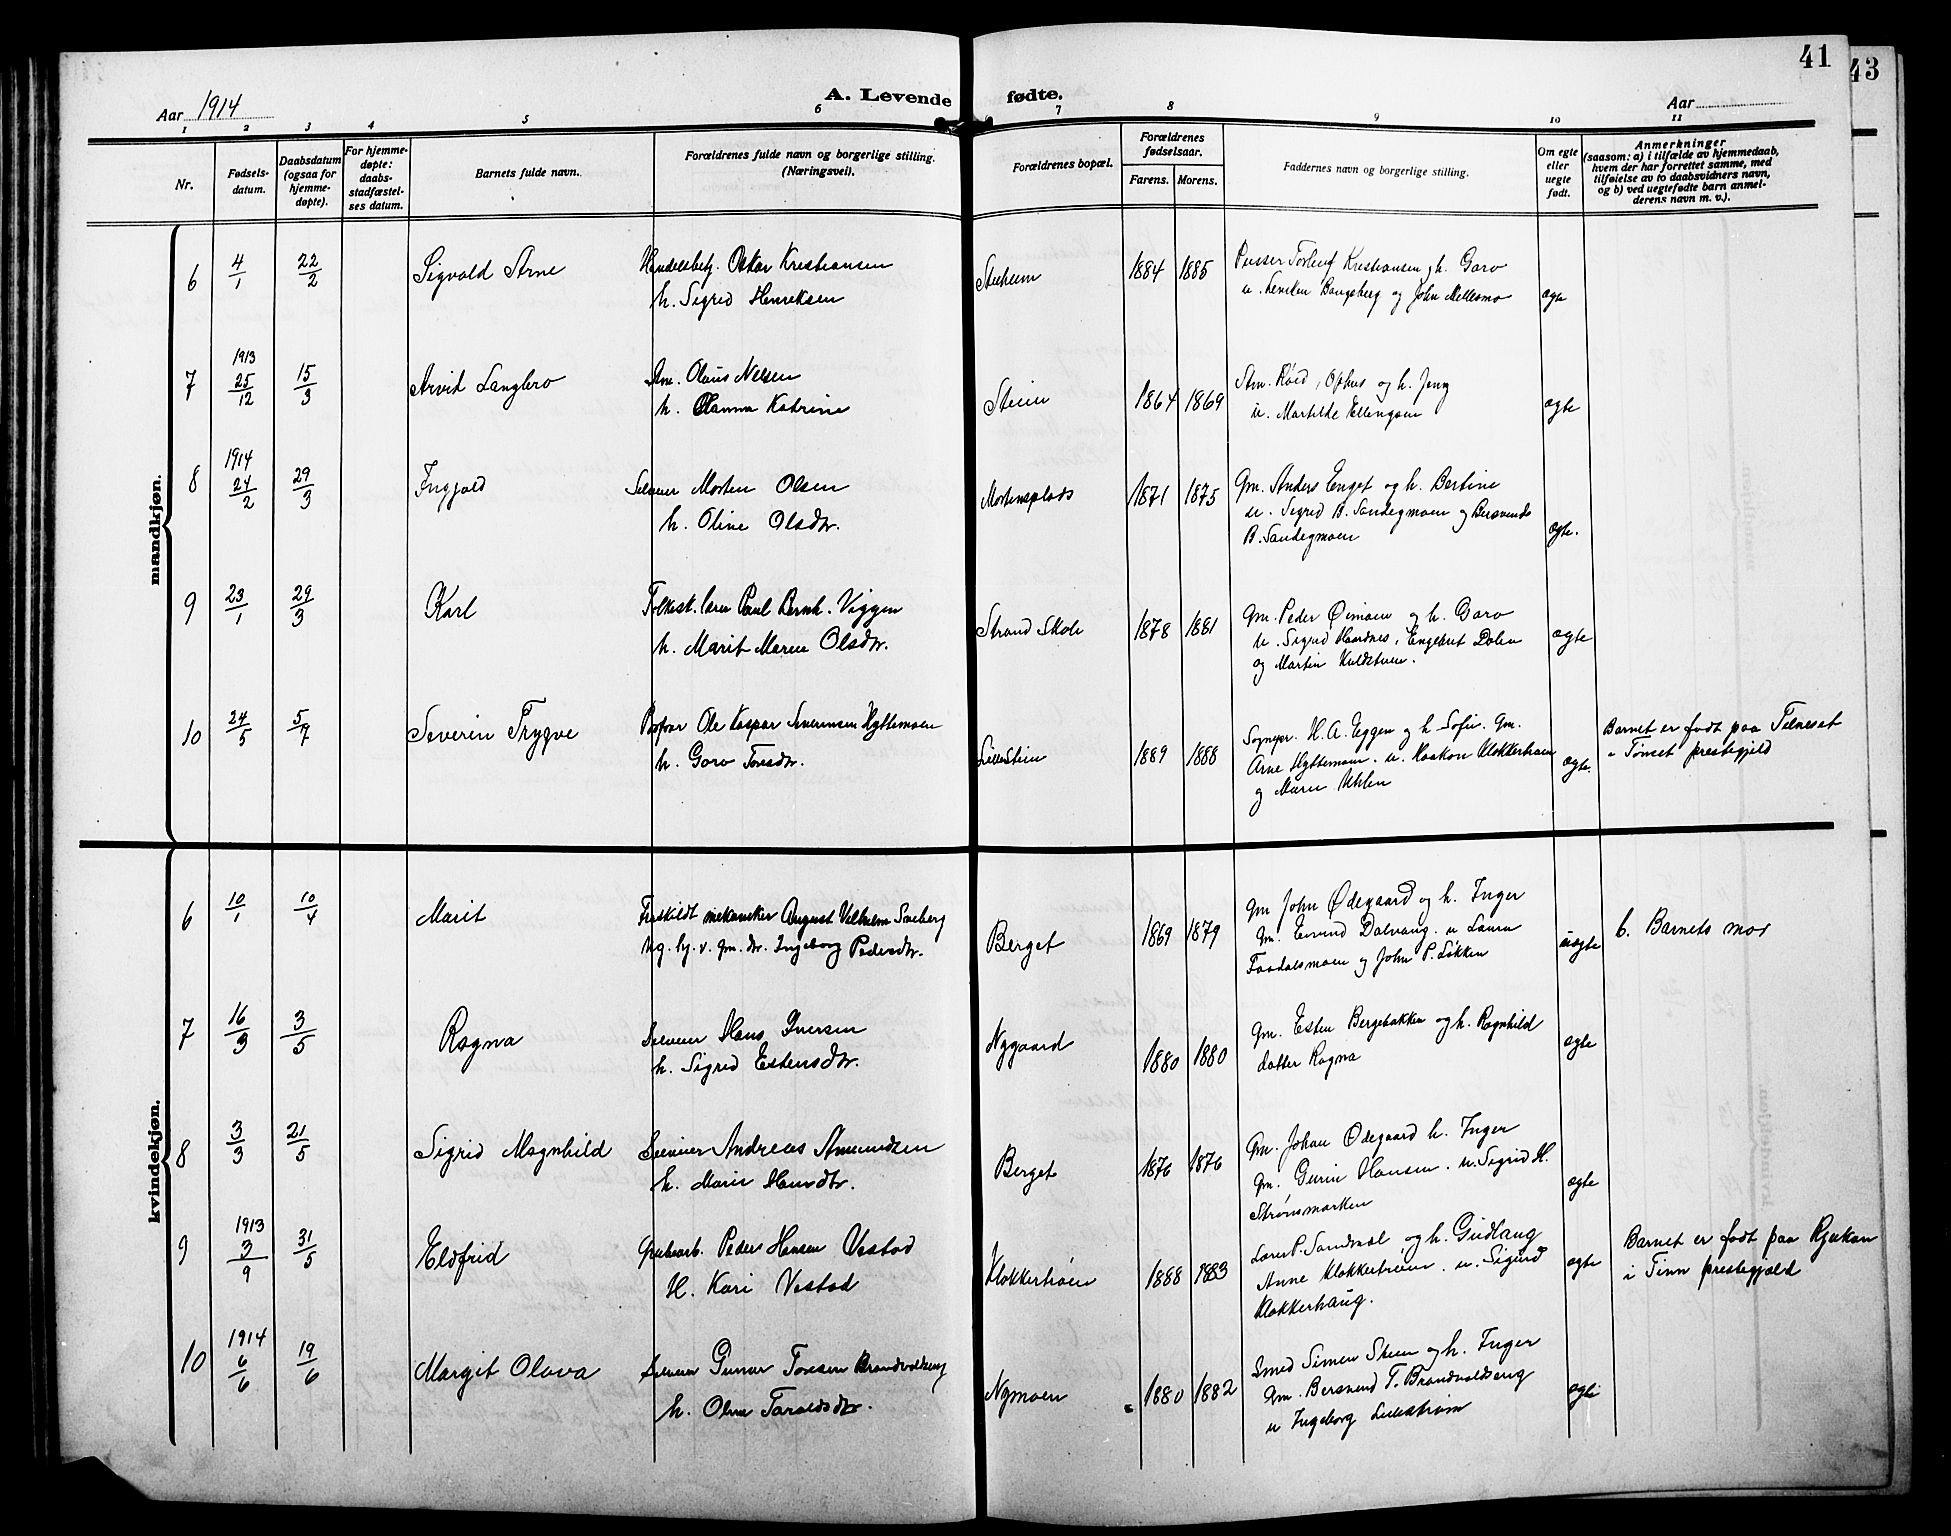 41
43
Aar 1914
A. Levende fødte.
Aar
1 2 3 4 5 6 7 8 9 10 11
Nr.
Fødsels-
datum.
Daabsdatum
(ogsaa for
hjemme-
døpte).
For hjemme-
døpte:
daabs-
stadfæstel-
ses datum.
Barnets fulde navn.
Forældrenes fulde navn og borgerlige stilling.
(Næringsvei).
Forældrenes bopæl.
Forældrenes
fødselsaar.
Farens. Morens.
Faddernes navn og borgerlige stilling.
Om egte
eller
uegte
født.
Anmerkninger
(saasom: a) i tilfælde av hjemmedaab,
hvem der har forrettet samme, med
tilføielse av to daabsvidners navn,
og b) ved uegtefødte barn anmel-
derens navn m. v.).
mandkjøn.
6 4/1 22/2 Sigvald Arne
Handelsbetj. Oskar Kristiansen
h. Sigrid Henriksen
1884 1885
Torleif Kristiansen, h. Goro
og John Mellesmo
egte
7 1913 25/12 15/3 Arvid Langbro
Am. Olaus Nelsen
h. Olanna Katrine
Steien
1864 1869
Røed, Ophus og h. Jeny
u. Martilde Ellengsen
egte
8 1914 24/2 29/3 Ingjald
Selveier Morten Olsen
h. Oline Olsdtr.
Mortensplads
1871 1875
Gm. Anders Enget og h. Bertine
u. Sigrid B. Sandegmoen og Bersvend
B. Sandegmoen
egte.
9 23/1 29/3 Karl
Folkesk. lærer Paul Bernh. Viggen
h. Marit Marie Olsdtr.
Strand Skole
1878 1881
Gm. Peder Øimoen og h. Goro
u. Sigrid Haardnes, Engebret Dalen
og Martin
egte
10 24/5 5/7 Severin Trygve
Ole Kaspar Severinsen Hyttemoen
h. Goro Toresdtr.
Lillesteien
1889 1888
Sognepr. H. A. Eggen og h. Sofie. Gm.
Arne Hyttemoen. u. Haakon Klokkerhaem
og Marie Uhlen
egte.
Barnet er født paa Telneset
i Tønset prestegjeld
kvindekjøn.
6 10/1 10/4 Marit
Fraskildt mekaniker August Vilhelm Soeberg
Ug. hj. v. gm. dtr. Ingeborg Pedersdtr.
Berget
1869 1879
Gm John Ødegaard og h. Inger
Gm. Eivind Dalvang. u Laura
Faadalsmoen og John P. Løkken
uegte
b. Barnets mor
7 16/3 3/5 Ragna
Selveier Hans Iversen
h. Sigrid Estensdtr.
Nygaard
1880 1880
Gm. Esten Bergebakken og h. Ragnhild
datter Ragna
egte
8 3/3 21/5 Sigrid Magnhild
Selveier Andreas Amundsen
h. Marie Hansdtr.
Berget
1876 1876
Gm. Johan Ødegaard h. Inger
Gm. Gurin Hansen. u. Sigrid H.
Strømsmarken
egte
9 1913 3/9 31/5 Eldfrid
Peder Hansen Vestad
H. Kari Vestad
Klokkerhøien
1888 1883
Lærer P. Sandmæl og h. Gudlaug
Anne Klokkerhøien. u. Sigurd
Klokkerhaug.
egte
Barnet er født paa Rjukan
i Tinn prestegjeld
10 1914 6/6 19/6 Margit Olava
Selveier Gunnar Toresen Brandvoldseng
h. Oline Taraldsdtr.
Nymoen
1880 1882
Smed Simen Steen og h. Inger
Gm. Bersvend T. Brandvoldseng
u Ingeborg Lillestrøm
egte